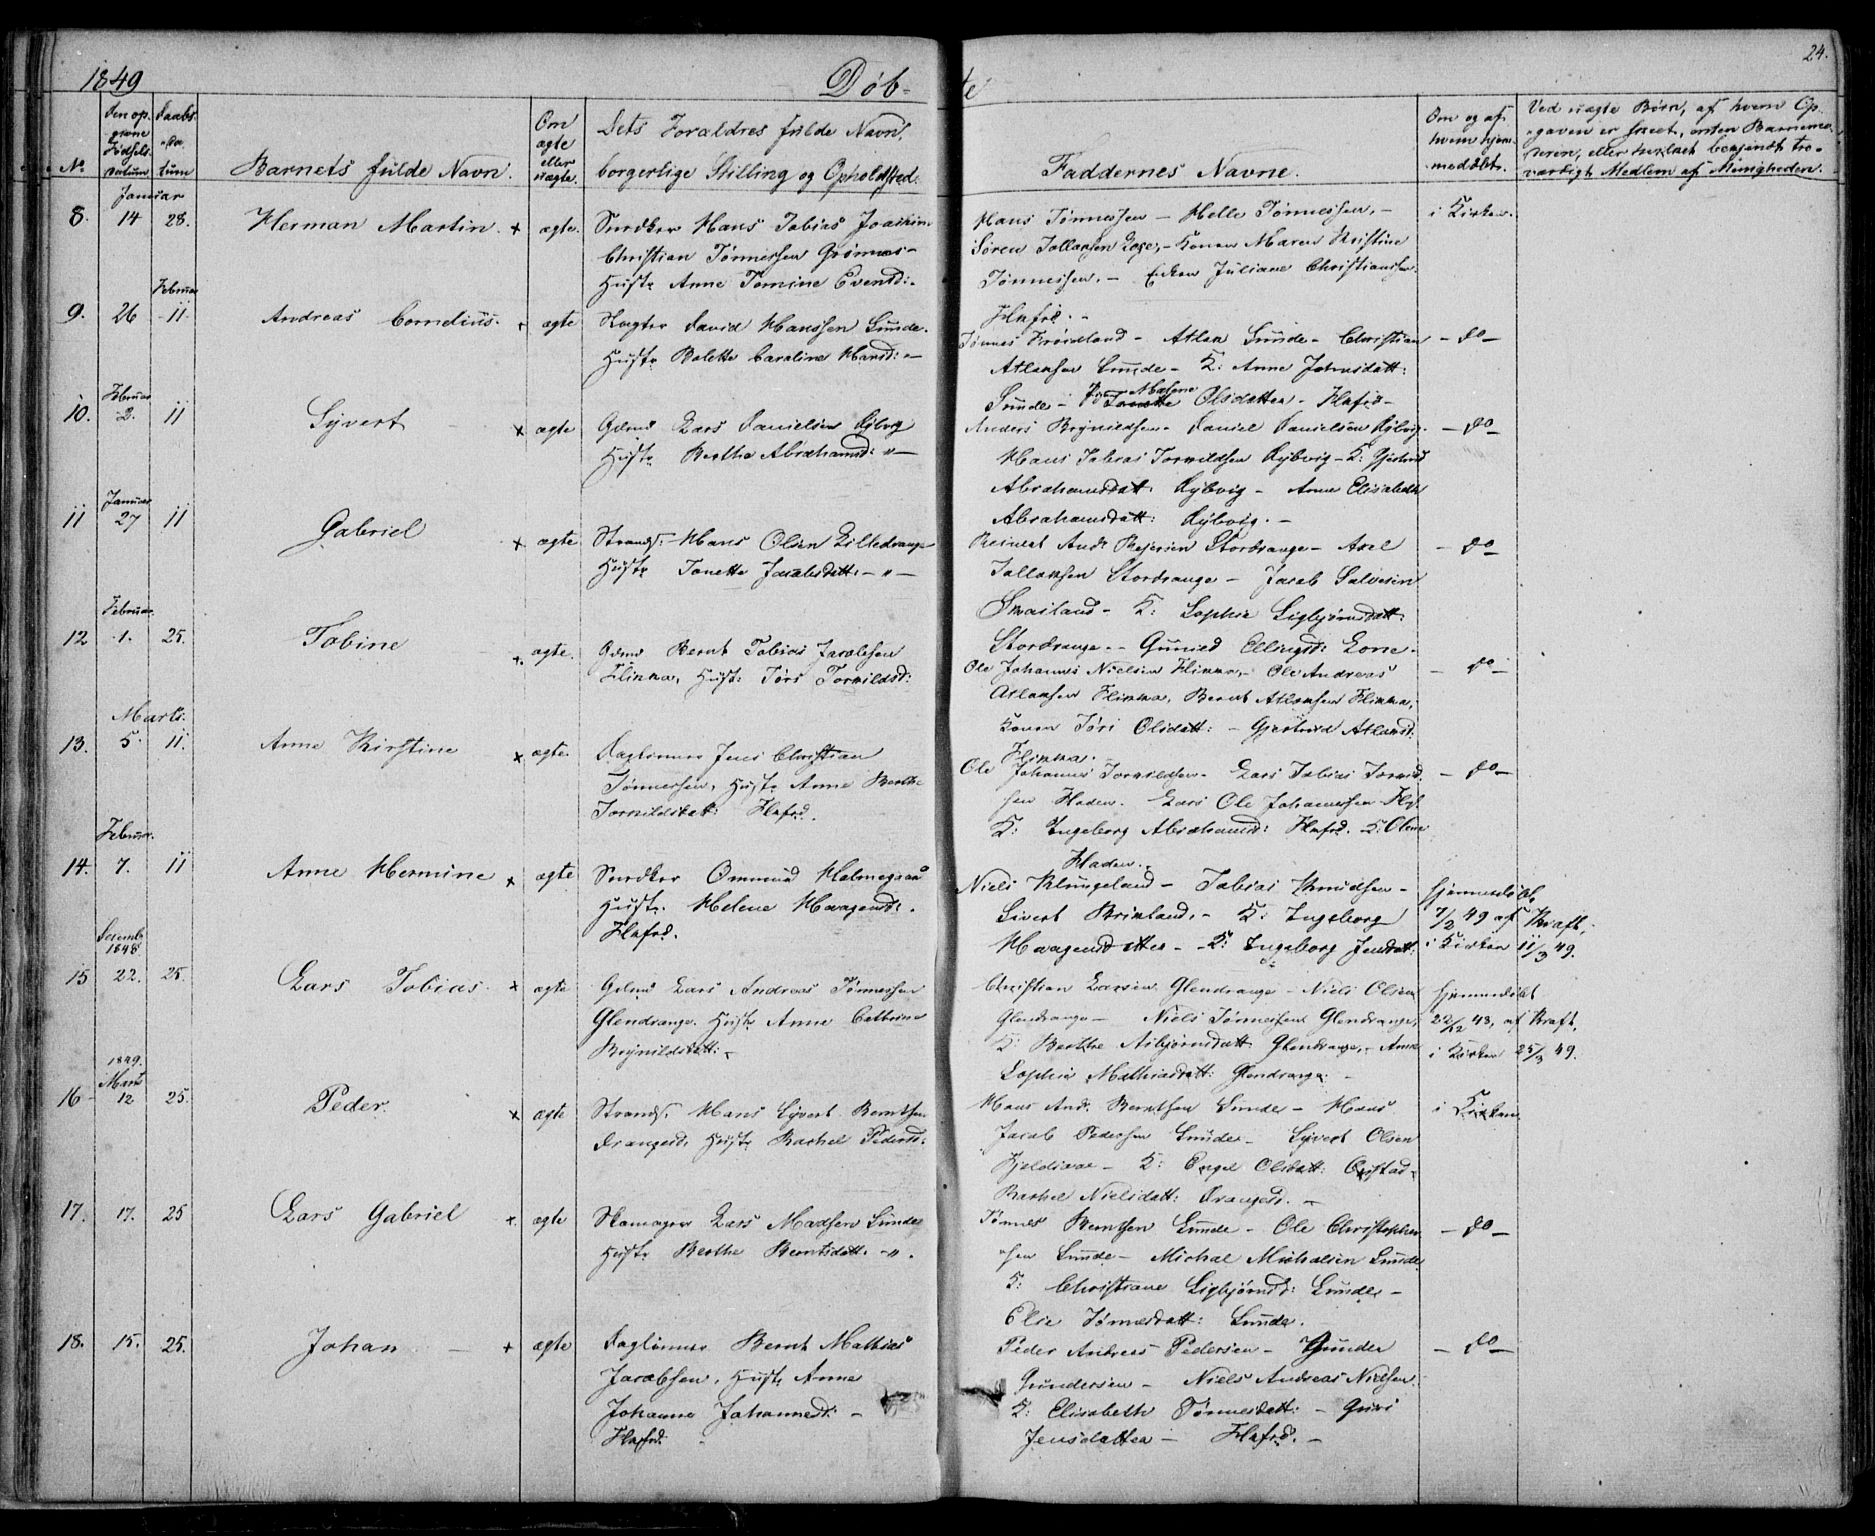 1849
Døbte
24.
No
Den op-
givne
Fødsels-
datum
Daabs
-da-
tum
Barnets fulde Navn.
Om
ægte
eller
uægte.
Dets Forældres fulde Navn,
borgerlige Stilling og Opholdssted.
Faddernes Navne.
Om og af
hvem hjem-
medøbt.
Ved uægte Børn, af hvem Op-
gaven er skeet, enten Barnemo-
deren, eller hvilket bekjendt tro-
værdigt Medlem af Menigheden.
Januar
8. 14 28. Herman Martin. + ægte. Snedker Hans Tobias Joachim
Christian Tønnessen Grønnes-
Hustr Anne Tomine Evensd:-
Hans Tønnessen - Helle Tønnessen, -
Søren Tollaksen Loge, - Konen Maren Kristine
Tønnessen. - Enken Juliane Christiansen
Flafjd. -
i Kirken.
Februar
9. 26 11. Andreas Cornelius. + ægte David Hanssen Sunde.
Hustr Bolette Caroline Hansd: -
Tønnes Frøisland - Atlak Sunde - Christian
Atlaksen Sunde - K: Anne Johnsdatt:
Sunde - Olsdatter - Flafjd -
- do -
Februar
10. 2. 11 Syvert + ægte Gdmd Lars Danielsen Rybvig
Hustr Berthe Abrahamsd: " -
Anders Brynildsen - Daniel Danielsen Rybvig.
Hans Tobias Torkildsen Rybvig - K: Gjertrud
Abrahamsdatt: Rybvig - Anne Elisabeth
Abrahamsdatt: Rybvig. -
- do -
Januar
11 27 11 Gabriel + ægte Strands: Hans Olsen Lilledrange
Hustr Tonette Jacobsdatt: - " -
Reinert Andr Rejersen Stordrange - Axel
Tollaksen Stordrange - Jacob Salvesen
K: Sophie Sigbjørnsdatt:
Stordrange. - Gunild Ellingsd: Lone -
- do -
Februar.
12 1. 25. Tobine +. ægte. Gdmd Bernt Tobias Jacobsen
Flikka, Hust: Torkildsd:
Ole Johannes Nielsen Flikka, - Ole Andreas
Atlaksen Flikka, Bernt Atlaksen Flikka,
Konen Olsdatt: - Gjertrud Atlaksd:
Flikka. -
- do -
Marts.
13. 5. 11. Anne Kirstine + ægte. Daglønner Jens Christian
Tønnessen, Hustr Anne Berthe
Torkildsdatt: Flafjd.
Ole Johannes Torkildsen - Lars Tobias Torkild
sen Fladen. Lars Ole Johannessen Flfj.
K: Ingeborg Abrahamsd: Flafjd. K: Olene
Fladen. -
- do -
Februar.
14. 7. 11 Anne Hermine + ægte Snedker Ommund Holmegaard
Hustr. Helene Haagensd: .
Flafjd.
Niels Klungeland - Tobias Knudsen -
Sivert Birkeland. - K: Ingeborg
Haagensdatter - K: Ingeborg Jensdatt:
hjemmedøbt
7/2 49 af Kraft,
i Kirken 11/3 49.
Decemb
1848.
15 22. 25. Lars Tobias. + ægte Gdmd Lars Andreas Tønnessen
Glendrange. Hustr Anne Cathrine
Brynildsdatt: -
Christian Larsen Glendrange - Niels Olsen
Glendrange - Niels Tønnessen Glendrange,
K: Berthe Asbjørnsdatt: Glendrange, - Anne
Sophie Mathiasdatt: Glendrange. -
hjemmedøbt
22/12 48, af Kraft,
i Kirken 25/3 49.
1849.
Marts
16 - 12 25. Peder. + ægte Strands. Hans Syvert Berntsen
Drangeid, Hustr Rachel Pedersd:
Hans And. Berntsen Sunde - Hans
Jacob Pedersen Sunde - Syvert Olsen
K: Engel Olsdatt:
Rachel Nielsdatt: Drangeid. -
i Kirken
17. 17. 25 Lars Gabriel +. ægte Skomager Lars Madsen Sunde
Hustr Berthe Berntsdatt: - " .
Tønnes Berntsen Sunde - Ole Christopher
sen Sunde - Michal Michalsen Sunde
K: Christiane Sigbjørnsd: Sunde -
Elie Tønnesdatt: Sunde.
- do -
18. 15. 25. Johan - + ægte Daglønner Bernt Mathias
Jacobsen, Hustr Anne
Johanne Johannesd: -
Flafjd. -
Peder Andreas Pedersen - Gunder
Gundersen - Niels Andreas Nielsen
K: Elisabeth Tønnesdatt: - Guri
Jensdatter - Flafjd. -
- do -